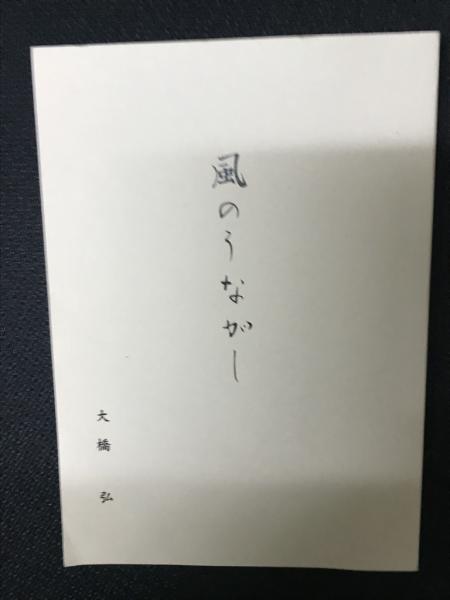 風のうながし
大橋 弘